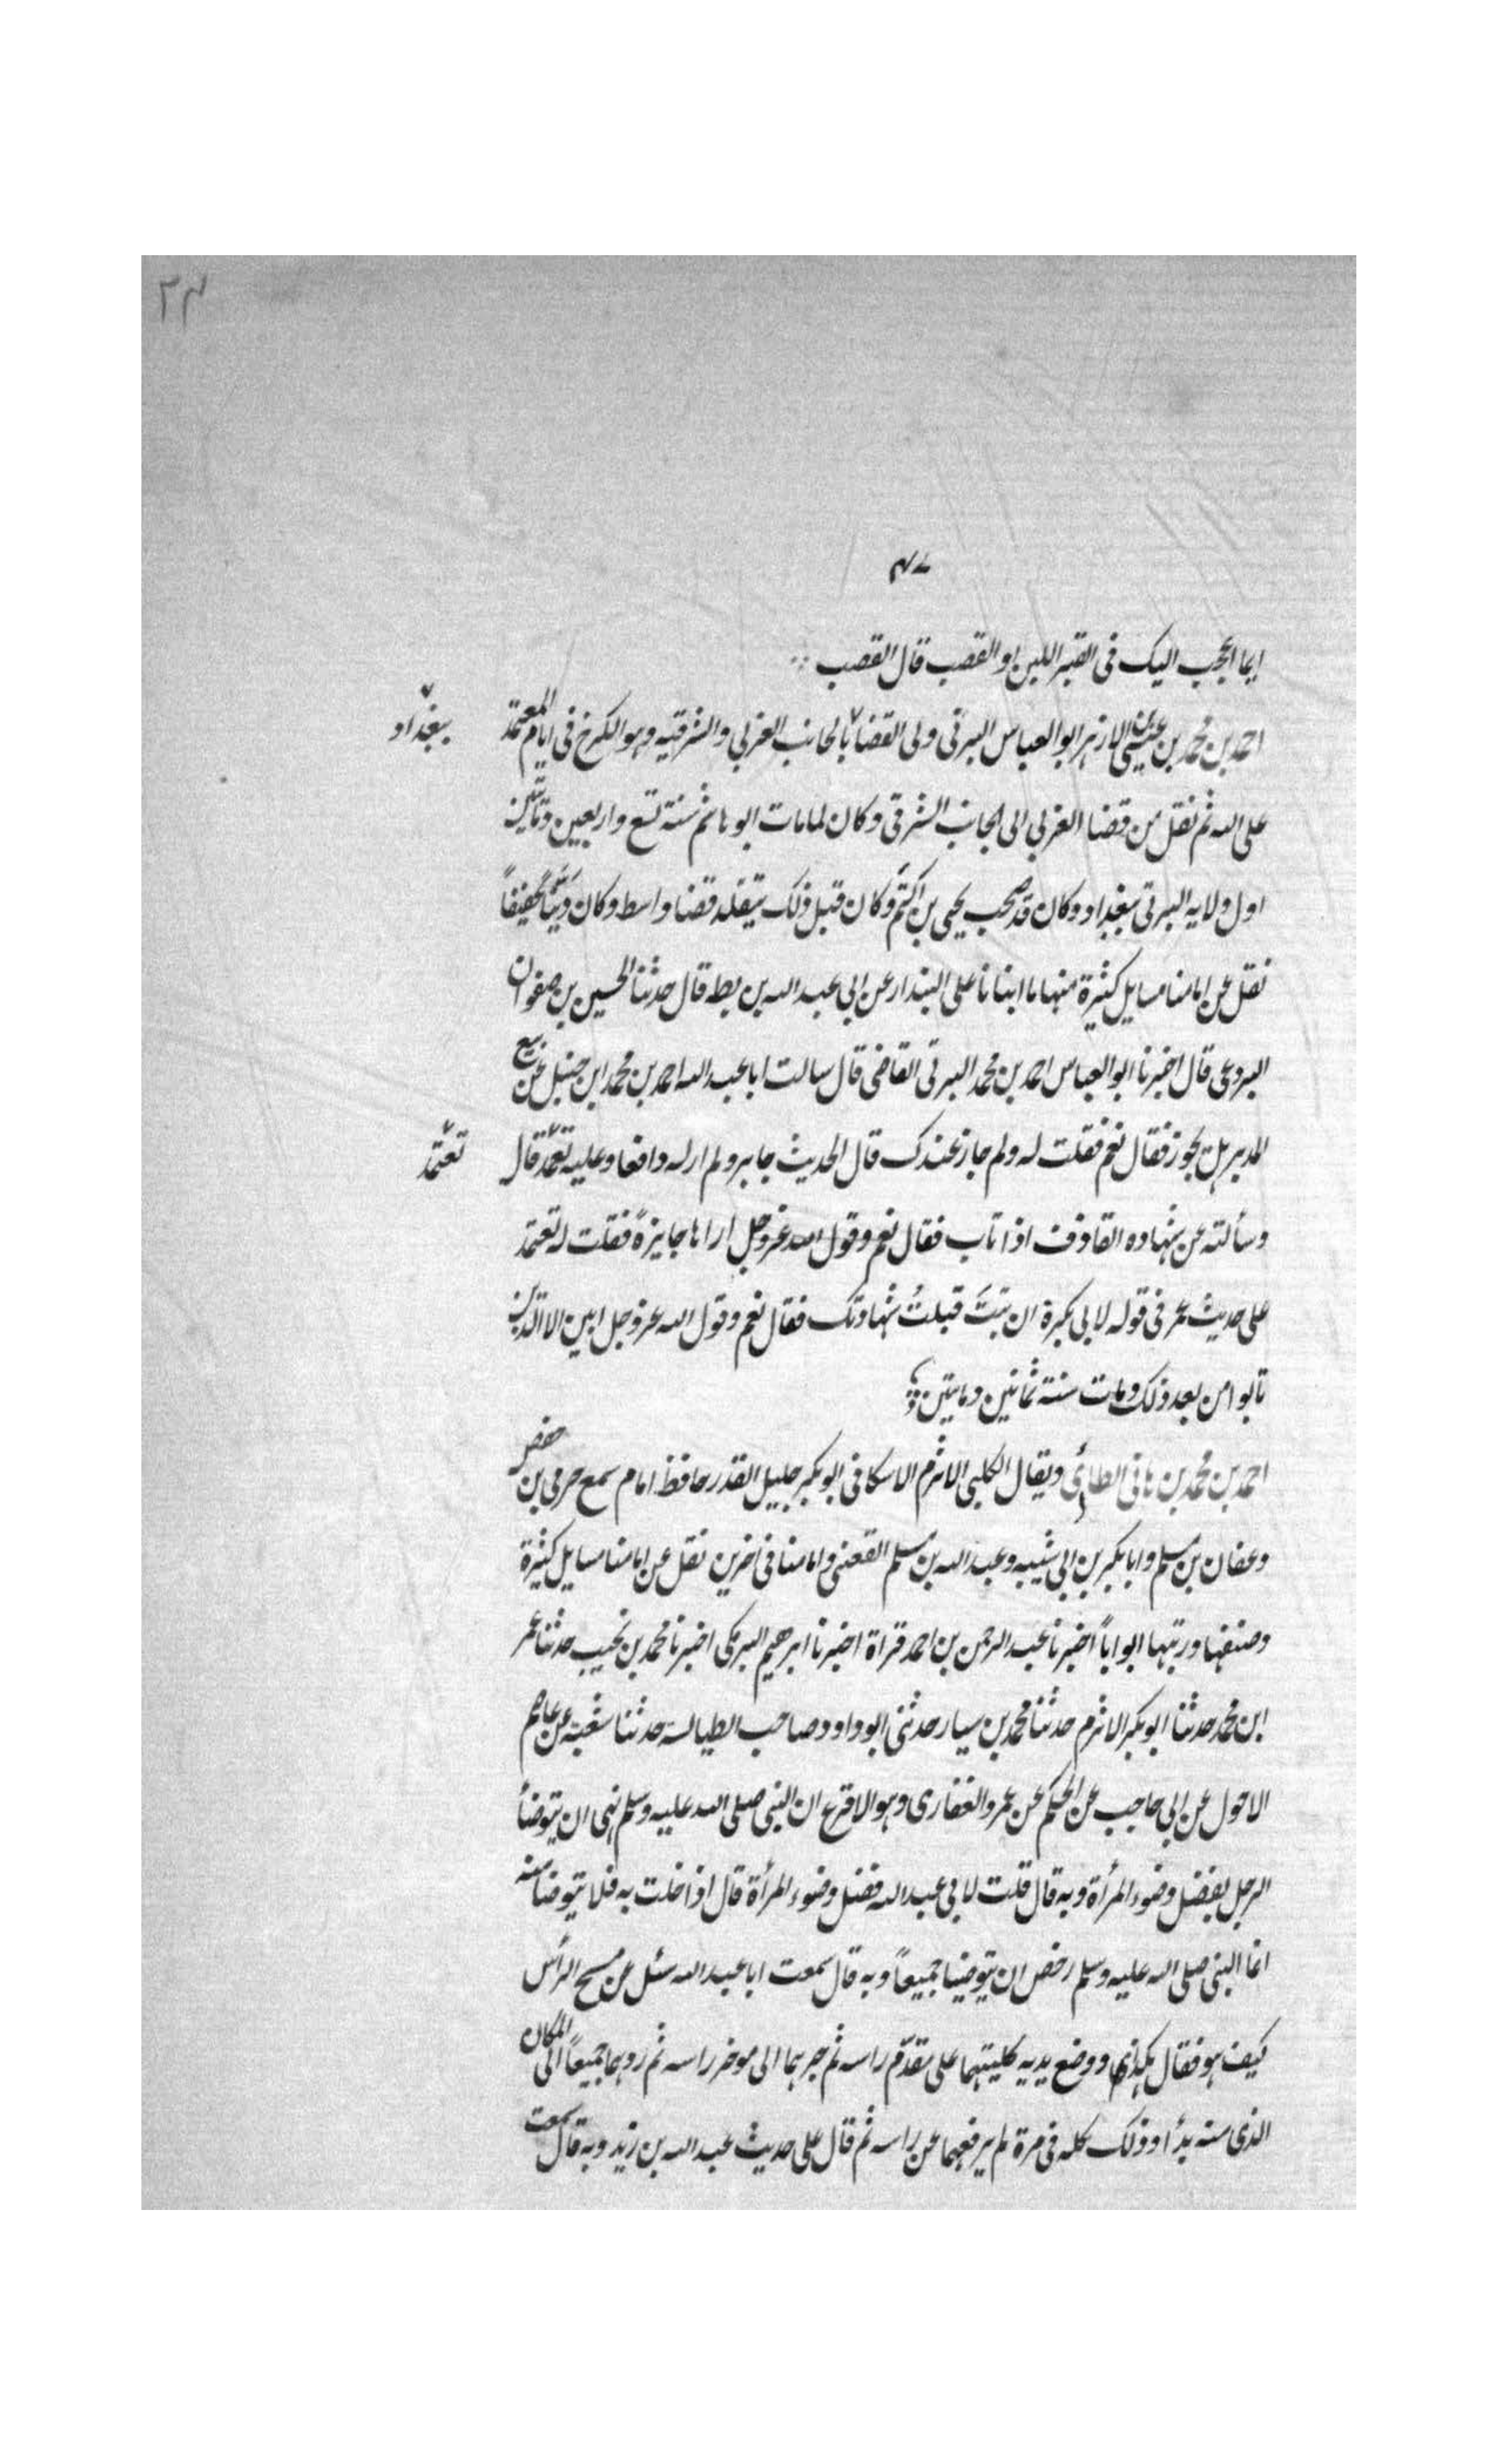 ٢٤
٤٧
ايما اعجب اليک فی القبر اللبن او القصب قال القصب
احمد بن محمد بن عيسى الازهر ابو العباس البرتی ولی القضا بالجانب الغربی والشرقيه وهو الکرخ فی ايام المعتمد
ببغداد
علی الله ثم نقل من قضا الغربی الی الجانب الشرقی وکان لما مات ابو هاشم سنة تسع واربعين ومأتين
اول ولايه البرتی ببغداد وکان قد صحب يحيی بن اکثم وکان قبل ذلک يتقلد قضا واسط وکان دَيِّناً عفيفاً
نقل عن امامنا مسايل کثيرة منها ما انبانا علی البندار عن ابی عبد الله بن بطه قال حدثنا الحسين بن صفوان
البردعی قال اخبرنا ابو العباس احمد بن محمد البرتی القاضی قال سالت ابا عبد الله احمد بن محمد ابن حنبل عن بيع
المدبر هل يجوز فقال نعم فقلت له ولم جاز عندک قال الحديث جابر ولم ار له دافعا وعليه تعمد قال
تعتمد
وسألته عن شهاده القاذف اذا تاب فقال نعم وقول الله عز وجل اراها جايزةً فقلت له تعتمد
علی حديث عمر فی قوله لابی بکرة ان تبتَ قبلتُ شهادتک فقال نعم وقول الله عز وجل ابين الا الذين
تابوا من بعد ذلک ومات سنة ثمانين ومايتين
احمد بن محمد بن هانی الطائی ويقال الکلبی الاثرم الاسکافی ابو بکر جليل القدر حافظ امام سمع حرمی بن حفص
وعفان بن مسلم وابا بکر بن ابی شيبه وعبد الله بن مسلم القعنبی وامامنا فی اخرين نقل عن امامنا مسايل کثيرة
وصنفها ورتبها ابواباً اخبرنا عبد الرحمن بن احمد قراة اخبرنا ابرهيم البرمکی اخبرنا محمد بن نجيب حدثنا عمر
ابن محمد حدثنا ابو بکر الاثرم حدثنا محمد بن سيار حدثنی ابو داود صاحب الطيالسه حدثنا شعبة عن عاصم
الاحول عن ابی حاجب عن الحکم عن عمرو الغفاری وهو الاقرع ان النبی صلی الله عليه وسلم نهی ان يتوضأ
الرجل بفضل وضوء المرأة وبه قال قلت لابی عبد الله فضل وضوء المرأة قال اذا خلت به فلا يتوضا منه
انما النبی صلی الله عليه وسلم رخص ان يتوضيا جميعاً وبه قال سمعت ابا عبد الله سئل عن مسح الرأس
کيف هو فقال هکذا ووضع يديه کليتهما علی مقدّم راسه ثم جرهما الی موخر راسه ثم ردهما جميعاً الی المکان
الذی منه بدأ وذلک کله فی مرة لم يرفعهما عن راسه ثم قال علی حديث عبد الله بن زيد وبه قال سمعت